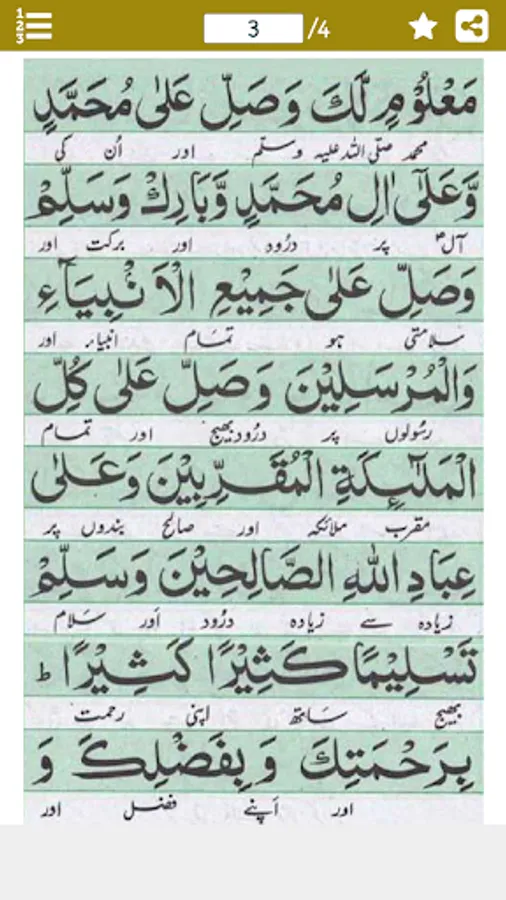 1
2
3
3
/4
مَعْلُوْمٍ لَّكَ وَصَلِّ عَلٰى مُحَمَّدٍ
محمد صلی اللہ علیہ وسلم اور اُن کی
وَّعَلٰٓى اٰلِ مُحَمَّدٍ وَّبَارِكْ وَسَلِّمْ
آلؑ پر درُود اور برکت اور
وَصَلِّ عَلٰى جَمِيْعِ الْاَنْبِيَآءِ
سلامتی ہو تمام انبیاء اور
وَالْمُرْسَلِيْنَ وَصَلِّ عَلٰى كُلِّ
رسُولوں پر درُود بھیج اور تمام
الْمَلٰٓئِكَةِ الْمُقَرَّبِيْنَ وَعَلٰى
مقرب ملائکہ اور صالح بندوں پر
عِبَادِ اللّٰهِ الصَّالِحِيْنَ وَسَلِّمْ
زیادہ سے زیادہ درُود اور سَلام
تَسْلِيْمًا كَثِيْرًا كَثِيْرًا ط
بھیج سَاتھ اپنی رحمت
بِرَحْمَتِكَ وَبِفَضْلِكَ وَ
اور اَپنے فضل اور